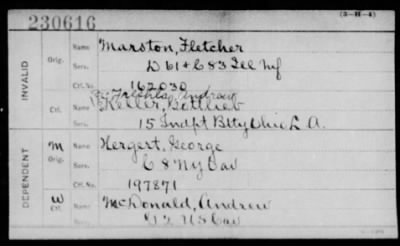 230616
(3-H-4)
INVALID
Orig.
Name Marston, Fletcher
Serv. D 61 + C 83 Ill Inf
Ctf. No. 162030
Ctf.
Name Keller, Gottlieb
Serv. 15 Indpt Btty Ohio L. A.
DEPENDENT
M
Orig.
Name Hergert, George
Serv. C 8 NY Cav
Ctf. No. 197871
W
Ctf.
Name McDonald, Andrew
Serv. G 2 US Cav